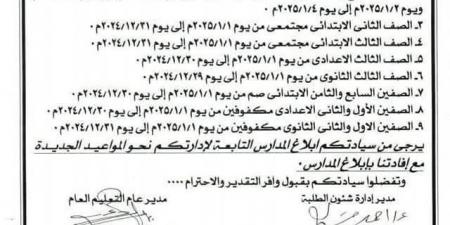 ويوم ٢٠٢٥/١/٢م إلى يوم ٢٠٢٥/١/٤م ٠
٣ـ الصف الثانى الابتدائى مجتمعى من يوم ٢٠٢٥/١/١م إلى يوم ٢٠٢٤/١٢/٣١م ٠
٤ـ الصف الثالث الابتدائى مجتمعى من يوم ٢٠٢٥/١/١م إلى يوم ٢٠٢٤/١٢/٣١م ٠
٥ـ الصف الثالث الاعدادى من يوم ٢٠٢٥/١/١م إلى يوم ٢٠٢٤/١٢/٣٠م ٠
٦ـ الصف الثالث الثانوى من يوم ٢٠٢٥/١/١م إلى يوم ٢٠٢٤/١٢/٢٩م ٠
٧ـ الصفين السابع والثامن الابتدائى صم من يوم ٢٠٢٥/١/١م إلى يوم ٢٠٢٤/١٢/٣٠م ٠
٨ـ الصفين الأول والثانى الاعدادى مكفوفين من يوم ٢٠٢٥/١/١م إلى يوم ٢٠٢٤/١٢/٣٠م ٠
٩ـ الصفين الاول والثانى الثانوى مكفوفين من يوم ٢٠٢٥/١/١م إلى يوم ٢٠٢٤/١٢/٣١م ٠
يرجى من سيادتكم ابلاغ المدارس التابعة لإدارتكم نحو المواعيد الجديدة
مع إفادتنا بإبلاغ المدارس ٠
وتفضلوا سيادتكم بقبول وافر التقدير والاحترام ....
مدير إدارة شئون الطلبة
مدير عام التعليم العام